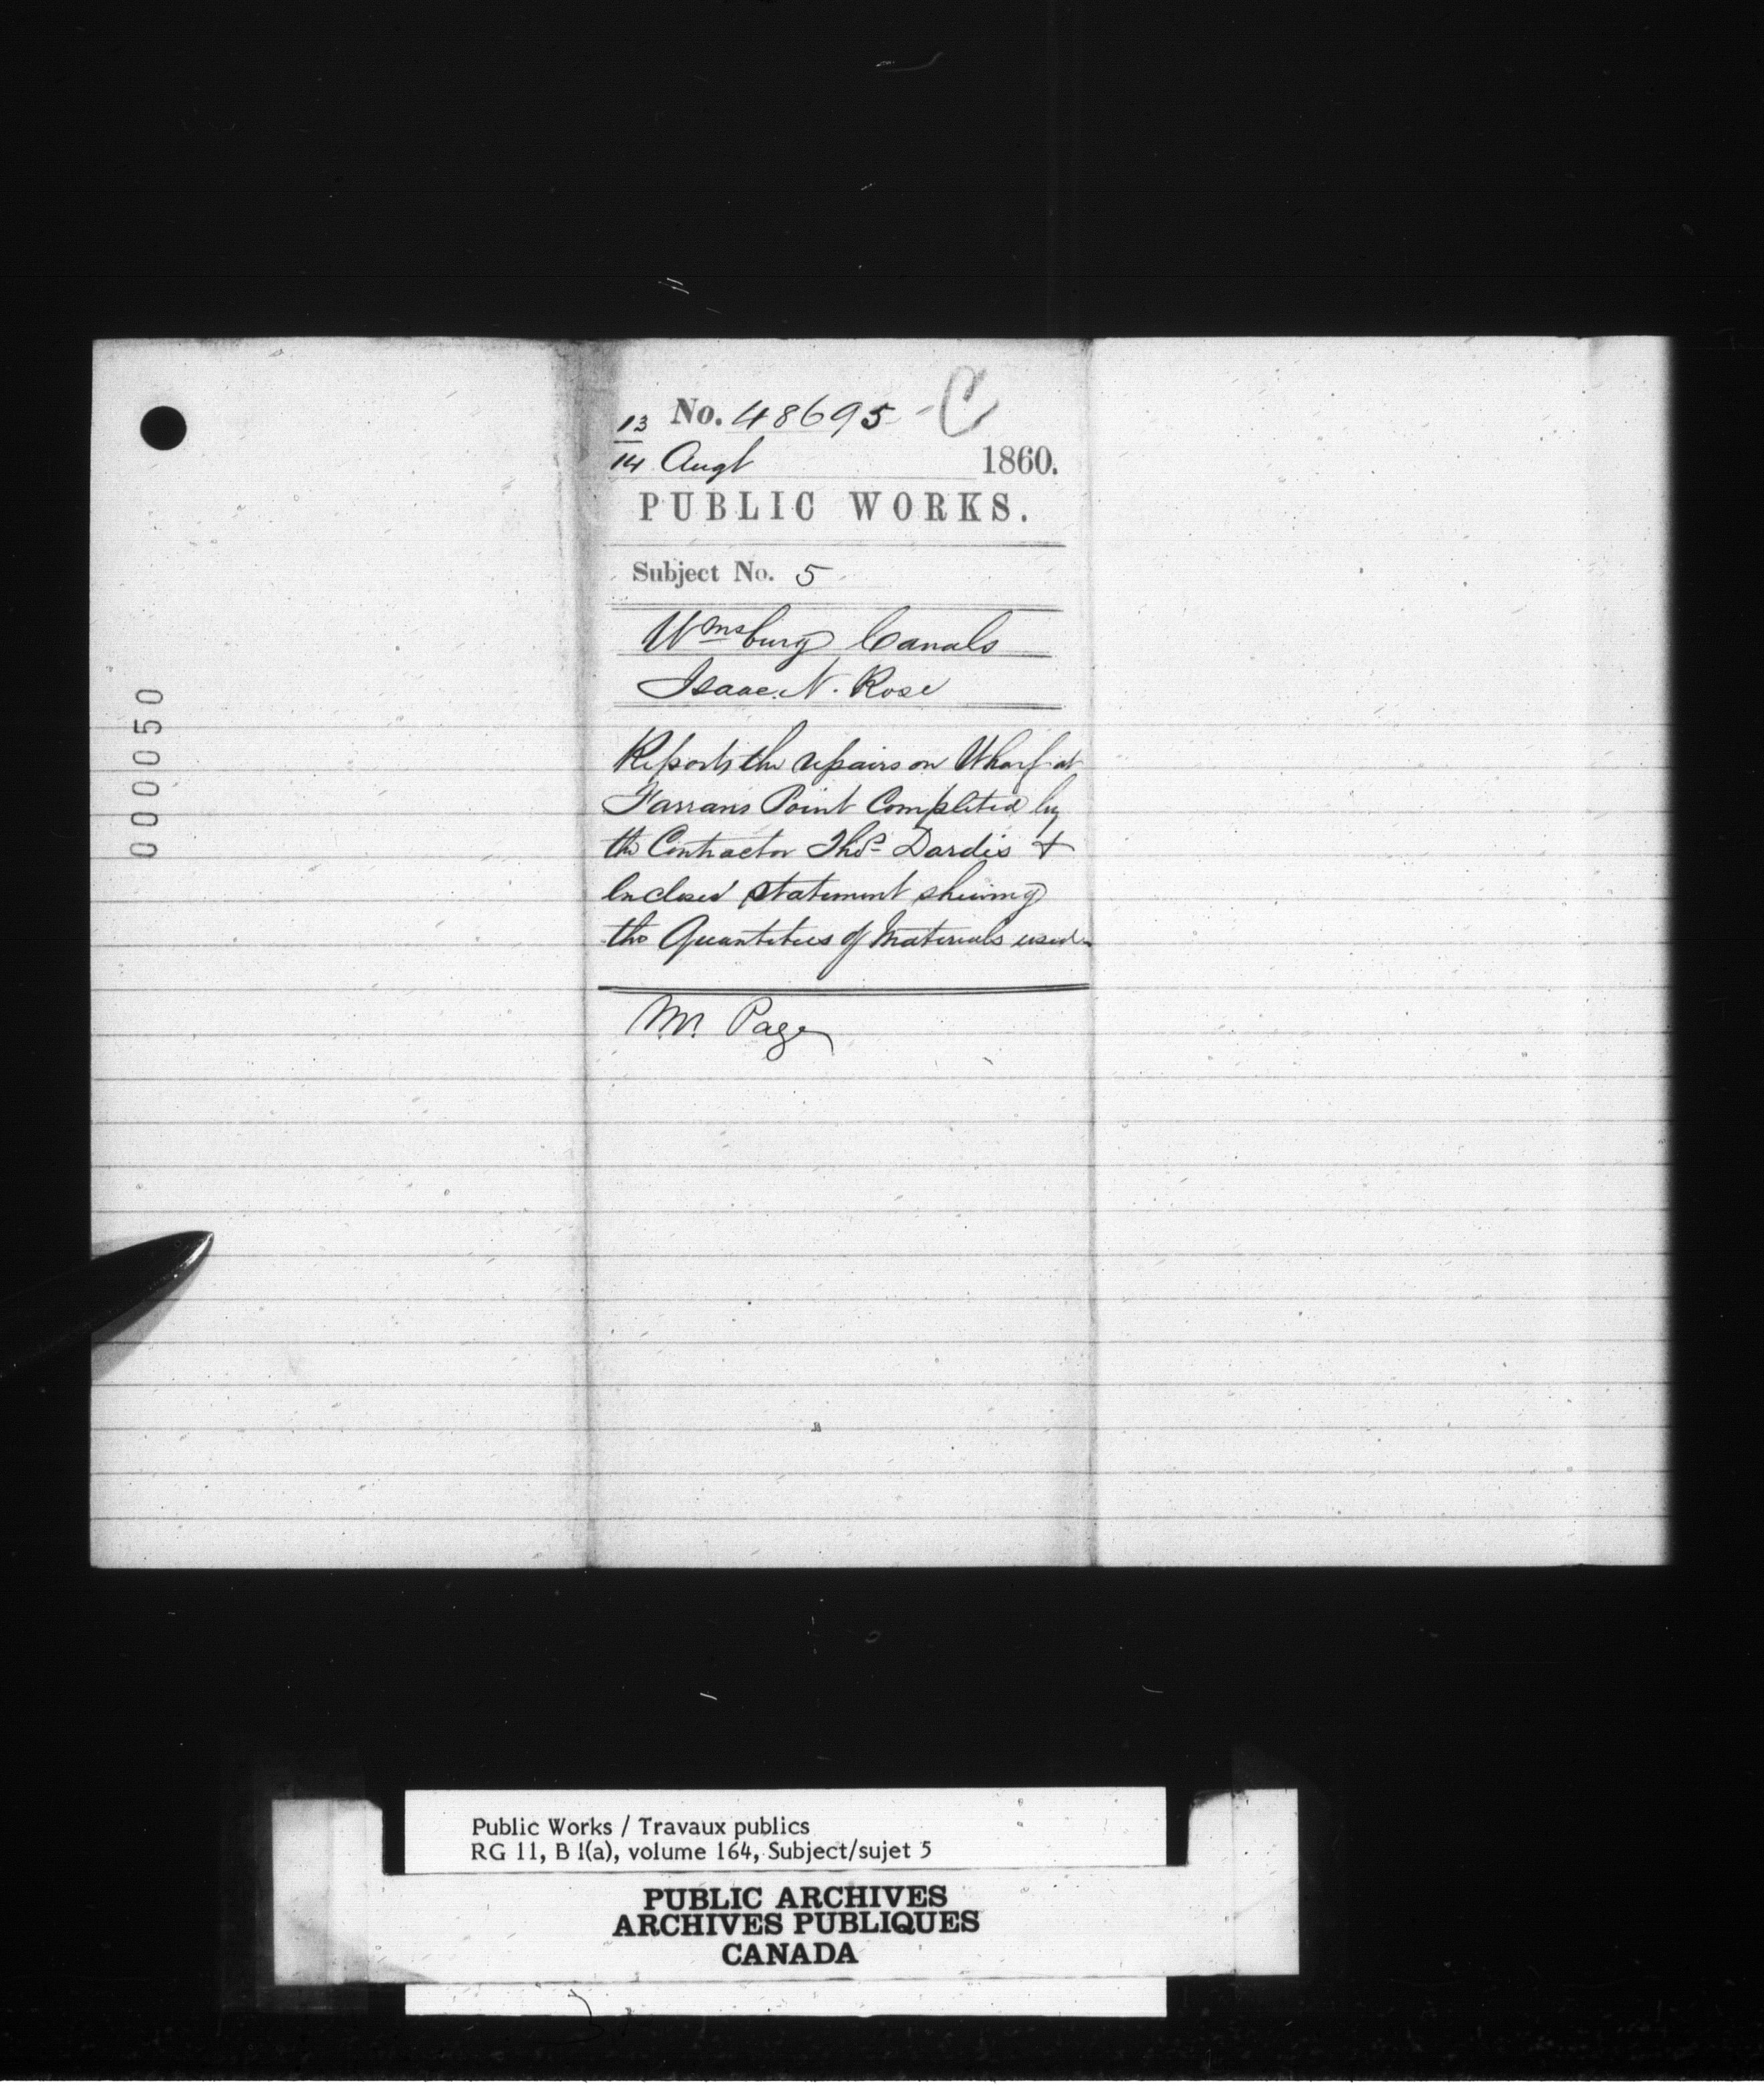 No. 48695 - C
13
14 Augt 1860.
PUBLIC WORKS.
Subject No. 5
Wmsburg Canals
Isaac. N. Rose
Reports the repairs on Wharf at
Farrans Point Completed by
the Contractor Thos Dardis +
Encloses statement shewing
the Quantities of Materials used
Mr. Page
000050
Public Works / Travaux publics
RG 11, B 1(a), volume 164, Subject/sujet 5
PUBLIC ARCHIVES
ARCHIVES PUBLIQUES
CANADA